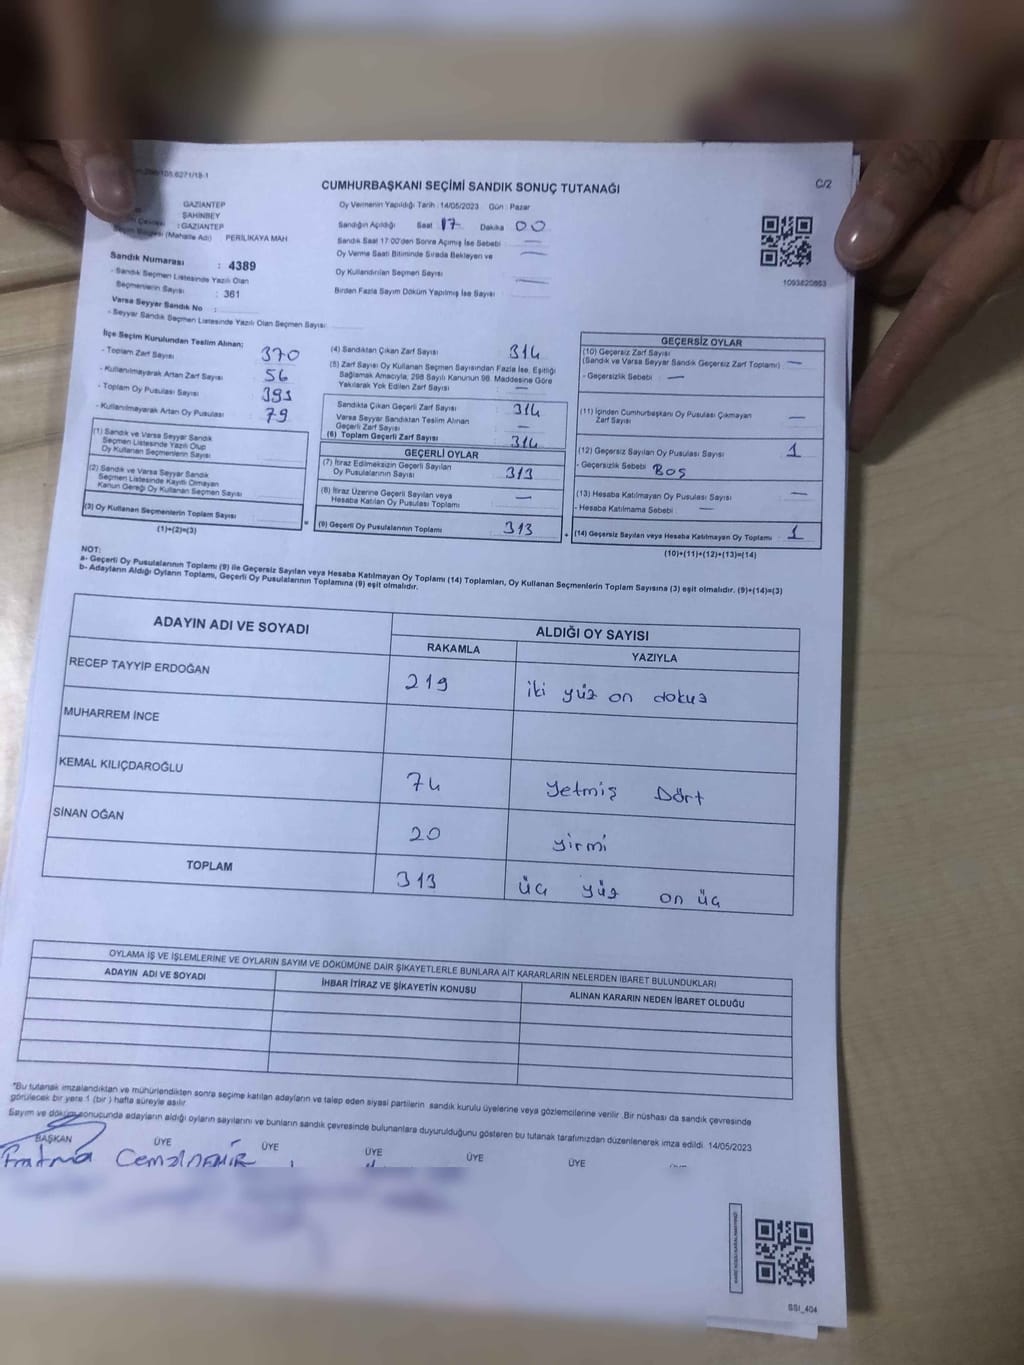 CUMHURBAŞKANI SEÇİMİ SANDIK SONUÇ TUTANAĞI
C/2
GAZİANTEP
ŞAHİNBEY
: GAZİANTEP
(Mahalle Adı) PERİLİKAYA MAH
Oy Vermenin Yapıldığı Tarih : 14/05/2023 Gün : Pazar
Sandığın Açıldığı Saat 17 Dakika 00
Sandık Saat 17:00'den Sonra Açımış İse Sebebi —
Oy Verme Saati Bitiminde Sırada Bekleyen ve —
Oy Kullandırılan Seçmen Sayısı
Birden Fazla Sayım Döküm Yapılmış İse Sayısı —
1093820863
Sandık Numarası : 4389
- Sandık Seçmen Listesinde Yazılı Olan
Seçmenlerin Sayısı : 361
Varsa Seyyar Sandık No :
- Seyyar Sandık Seçmen Listesinde Yazılı Olan Seçmen Sayısı
İlçe Seçim Kurulundan Teslim Alınan;
- Toplam Zarf Sayısı 370
- Kullanılmayarak Artan Zarf Sayısı 56
- Toplam Oy Pusulası Sayısı
- Kullanılmayarak Artan Oy Pusulası 79
(1) Sandık ve Varsa Seyyar Sandık
Seçmen Listesinde Yazılı Olup
Oy Kullanan Seçmenlerin Sayısı
(2) Sandık ve Varsa Seyyar Sandık
Seçmen Listesinde Kayıtlı Olmayan
Kanun Gereği Oy Kullanan Seçmen Sayısı
(3) Oy Kullanan Seçmenlerin Toplam Sayısı
(1)+(2)=(3)
(4) Sandıktan Çıkan Zarf Sayısı 314
(5) Zarf Sayısı Oy Kullanan Seçmen Sayısından Fazla İse, Eşitliği
Sağlamak Amacıyla, 298 Sayılı Kanunun 98. Maddesine Göre
Yakılarak Yok Edilen Zarf Sayısı : —
Sandıkta Çıkan Geçerli Zarf Sayısı : 314
Varsa Seyyar Sandıktan Teslim Alınan
Geçerli Zarf Sayısı —
(6) Toplam Geçerli Zarf Sayısı 314
GEÇERLİ OYLAR
(7) İtiraz Edilmeksizin Geçerli Sayılan
Oy Pusulalarının Sayısı : 313
(8) İtiraz Üzerine Geçerli Sayılan veya
Hesaba Katılan Oy Pusulası Toplamı —
(9) Geçerli Oy Pusulalarının Toplamı : 313
GEÇERSİZ OYLAR
(10) Geçersiz Zarf Sayısı
(Sandık ve Varsa Seyyar Sandık Geçersiz Zarf Toplamı) : —
- Geçersizlik Sebebi : —
(11) İçinden Cumhurbaşkanı Oy Pusulası Çıkmayan
Zarf Sayısı —
(12) Geçersiz Sayılan Oy Pusulası Sayısı : 1
- Geçersizlik Sebebi Boş
(13) Hesaba Katılmayan Oy Pusulası Sayısı : —
- Hesaba Katılmama Sebebi : —
(14) Geçersiz Sayılan veya Hesaba Katılmayan Oy Toplamı : 1
(10)+(11)+(12)+(13)=(14)
NOT:
a- Geçerli Oy Pusulalarının Toplamı (9) ile Geçersiz Sayılan veya Hesaba Katılmayan Oy Toplamı (14) Toplamları, Oy Kullanan Seçmenlerin Toplam Sayısına (3) eşit olmalıdır. (9)+(14)=(3)
b- Adayların Aldığı Oyların Toplamı, Geçerli Oy Pusulalarının Toplamına (9) eşit olmalıdır.
ADAYIN ADI VE SOYADI
ALDIĞI OY SAYISI
RAKAMLA YAZIYLA
RECEP TAYYİP ERDOĞAN 219 iki yüz on dokuz
MUHARREM İNCE
KEMAL KILIÇDAROĞLU 74 Yetmiş Dört
SİNAN OĞAN 20 yirmi
TOPLAM 313 üç yüz on üç
OYLAMA İŞ VE İŞLEMLERİNE VE OYLARIN SAYIM VE DÖKÜMÜNE DAİR ŞİKAYETLERLE BUNLARA AİT KARARLARIN NELERDEN İBARET BULUNDUKLARI
ADAYIN ADI VE SOYADI İHBAR İTİRAZ VE ŞİKAYETİN KONUSU ALINAN KARARIN NEDEN İBARET OLDUĞU
*Bu tutanak imzalandıktan ve mühürlendikten sonra seçime katılan adayların ve talep eden siyasi partilerin sandık kurulu üyelerine veya gözlemcilerine verilir .Bir nüshası da sandık çevresinde
görülecek bir yere 1 (bir ) hafta süreyle asılır.
Sayım ve döküm sonucunda adayların aldığı oyların sayılarını ve bunların sandık çevresinde bulunanlara duyurulduğunu gösteren bu tutanak tarafımızdan düzenlenerek imza edildi. 14/05/2023
BAŞKAN ÜYE ÜYE ÜYE ÜYE ÜYE
Fatma
SSI_404